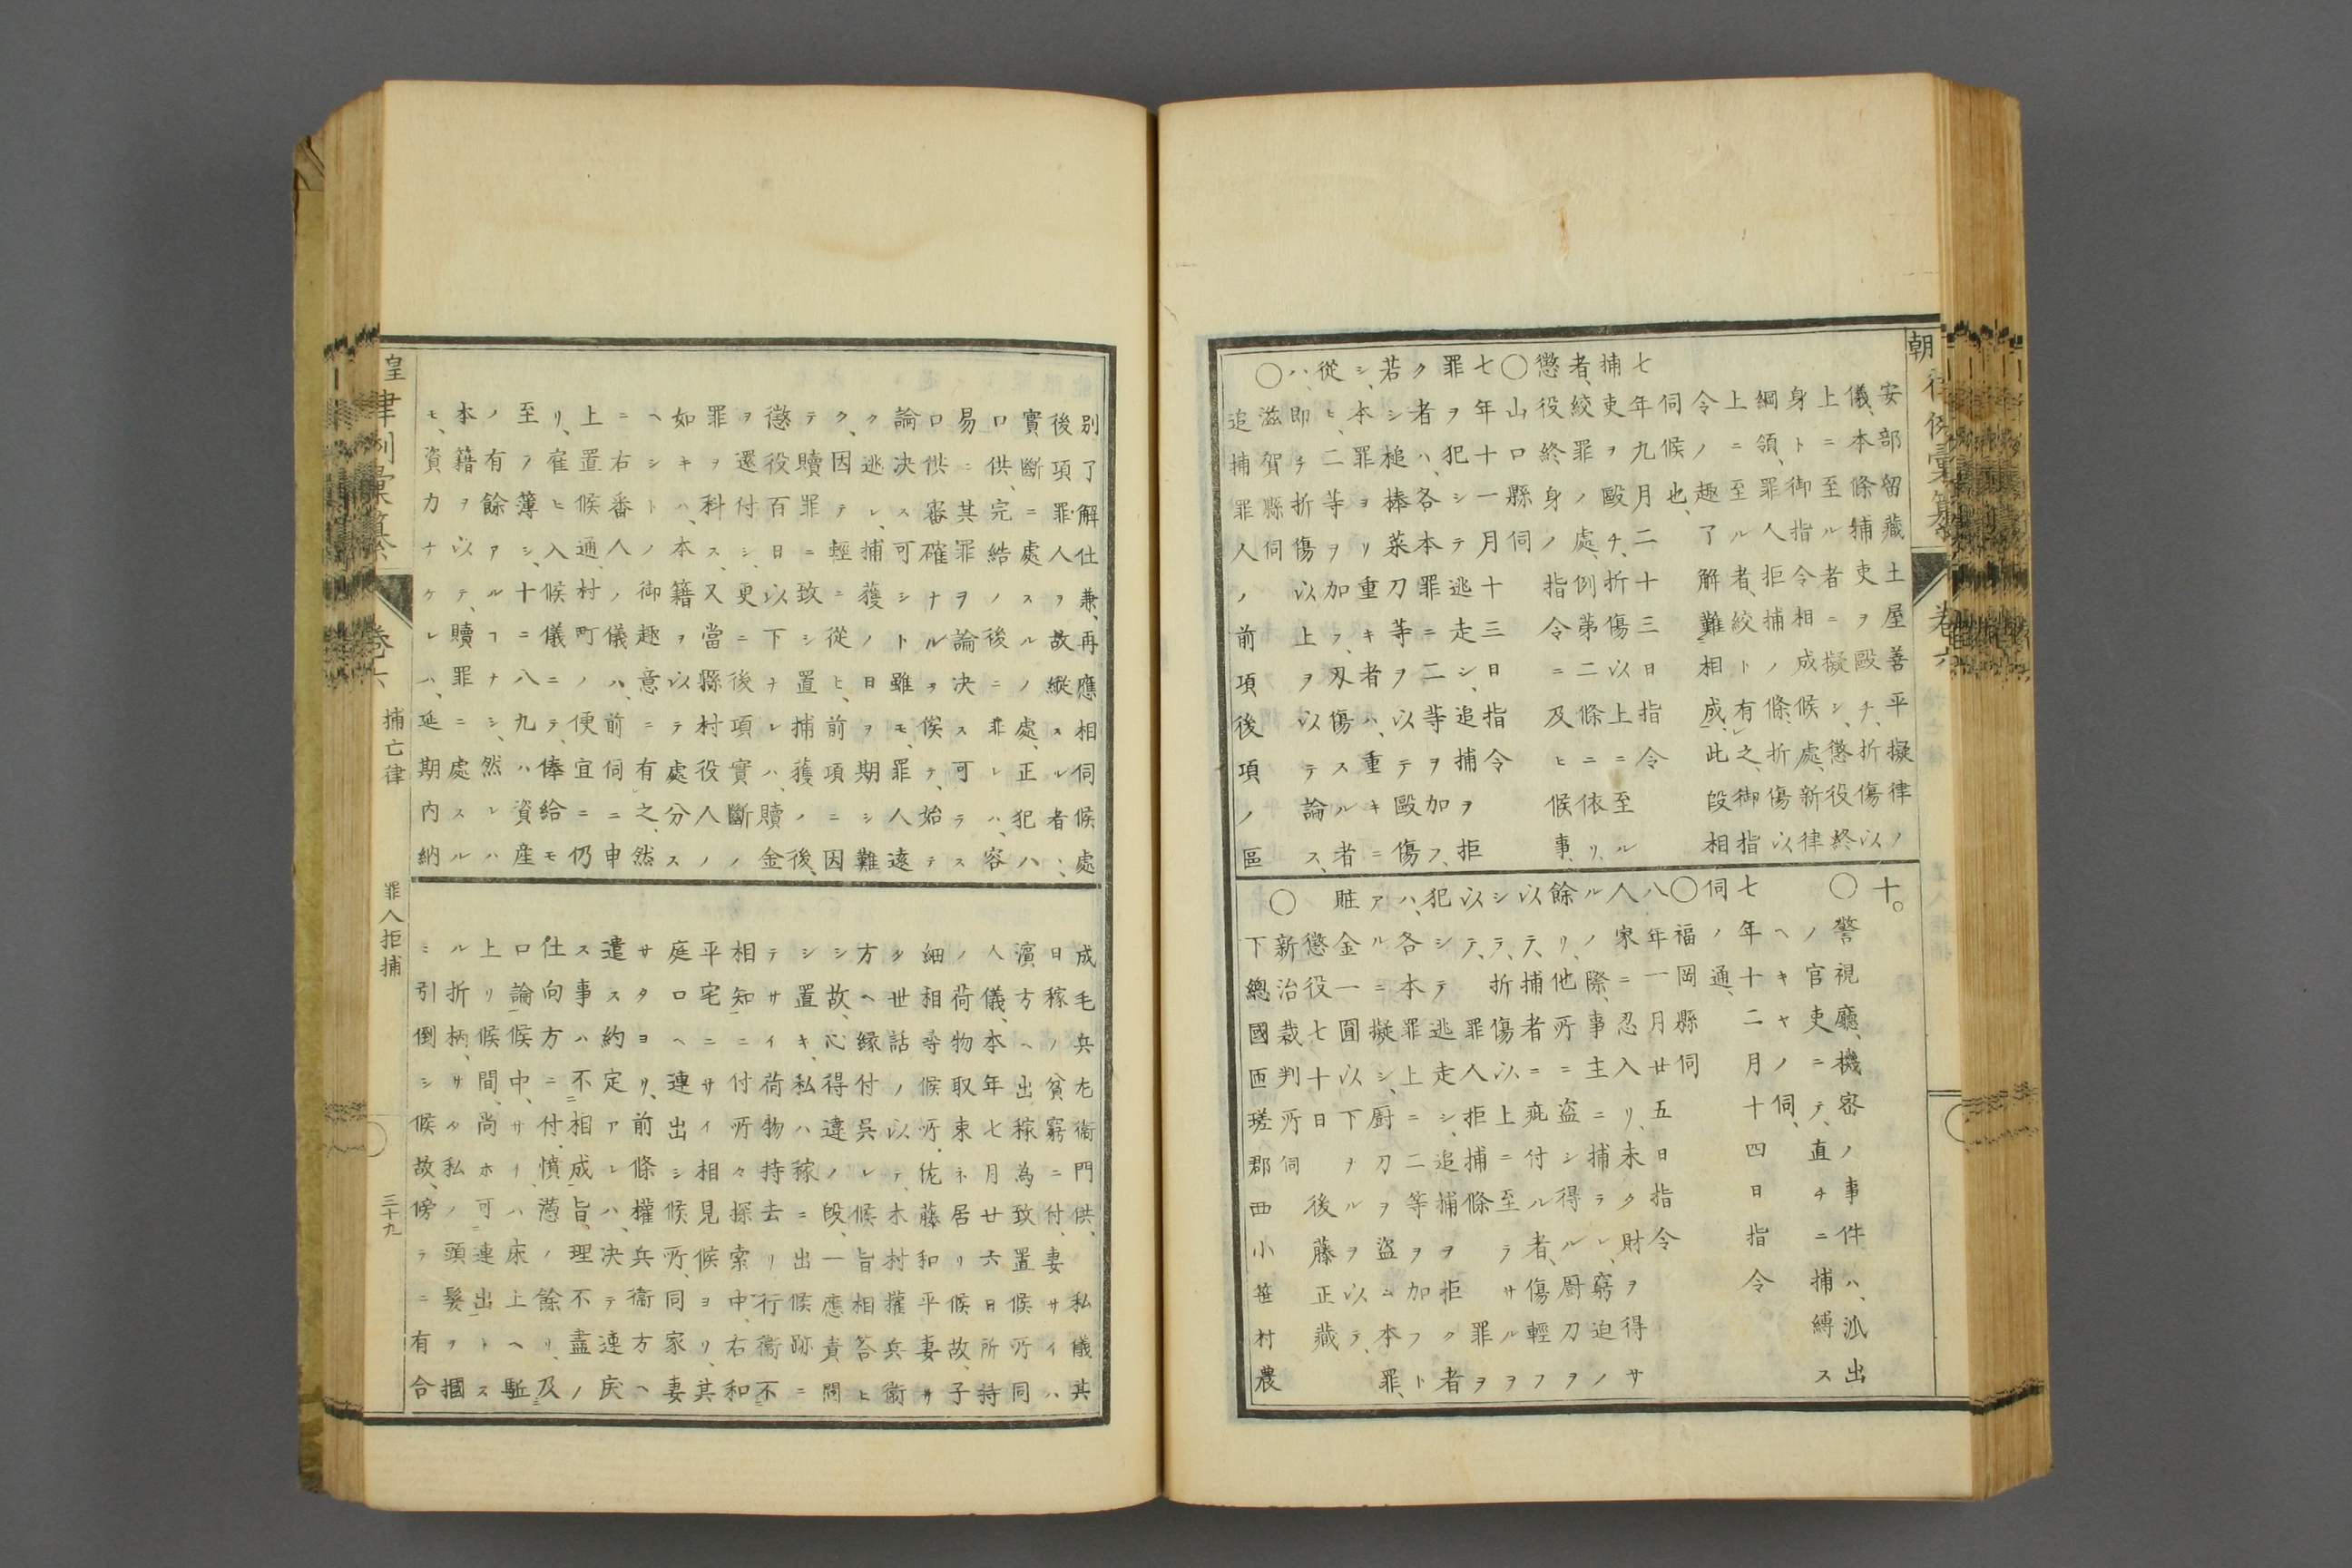 朝
卷六
安部留藏土屋善平擬律ノ
儀、本條捕吏ヲ毆チ、折傷以
上ニ至ル者ニ擬シ、懲役終
身ト御指令相成候處、新律
綱領、罪人拒捕ノ條、折傷以
上ニ至ル者、絞ト有之、御指
令ノ趣了解難相成、此段相
伺候也、
七年九月二十三日指令
捕吏ヲ毆チ、折傷以上ニ至ル
者、絞罪ノ處、例第二條ニ依リ、
懲役終身ノ指令ニ及ヒ候事、
○山口縣伺
七年十一月十三日指令
罪ヲ犯シテ逃走シ、追捕ヲ拒
ク者ハ、各本罪ニ二等ヲ加フ、
若シ槌棒菜刀等ヲ以テ毆傷
シ、本罪ヨリ重キ者ハ、重キニ
從ヒ、二等ヲ加ヲ、刄傷スル者
ハ、即チ折傷以上ヲ以テ論ス、
○滋賀縣伺
追捕罪人ノ前項後項ノ區
別了解仕兼、再應相伺候處、
後項罪人ヲ故縱スル者ハ、
實斷ニ處スルノ處、正犯ハ
口供、完結ノ後ニ非レハ、容
易ニ其罪ヲ論決ス可ラス
口供審確ナルヲ俟テ、始テ
論決ス可シト雖モ、罪人遠
ク逃レ、捕獲ノ日ヲ期シ難
ク、因テ輕ニ從ヒ、前項ニ因
テ贖罪ニ致シ置、捕獲ノ後、
懲役百日以下ナレハ、贖金
ヲ還付シ、更ニ後項實斷ノ
罪ヲ科ス、又當縣村役人ノ
如キハ、本籍ヲ以テ處分ス
ヘシトノ御趣意ニ有之、然
ニ右番人ノ儀ハ、前伺ニ申
上置候通、村町ノ便宜ニ仍
リ、雇ヒ入候儀ニテ、俸給モ
至ヲ薄シ、十ニ八九ハ資産
ノ有餘アルヿナシ、然レハ
本籍ヲ以テ、贖罪ニ處スル
モ、資力ナケレハ、延期内納
十。
○警視廳、機密ノ事件ハ、派出
ノ官吏ニテ、直チニ捕縛ス
ヘキヤノ伺、
七年十二月十四日指令
伺ノ通、
○福岡縣伺
八年一月廿五日指令
人家ニ忍入リ、未タ財ヲ得サ
ル際、事主ニ捕ラレ、窮迫ノ
餘リ、他所ニ盗シ得ル厨刀ヲ
以テ、捕者ニ疵付ル者、傷輕フ
シテ、折傷以上ニ至ラサルヲ
以テ、罪人拒捕條罪ヲ
犯シテ逃走シ、追捕ヲ拒ク者
ハ、各本罪上ニ二等ヲ加フト
アルニ擬シ、厨刀ヲ盗ニ本罪、
贓金一圓以下ルヲ以テ、
懲役七十日 後藤正藏
○新治裁判所伺
下總國匝瑳郡西小笹村農
成毛兵左衞門供、私儀其
日稼ノ貧窮ニ付、妻サイハ
濱方ヘ出稼為致置候所、同
人儀、本年七月廿六日所持
ノ荷物取束ネ居リ候故、子
細相尋候所、佐藤和平妻サ
タ世話ノ以テ、木村權兵衞
方ヘ縁付呉レ候旨相答ヒ
シ故、心得違ノ段一應責問
シ置キ、私ハ稼ニ出候跡ニ
テサイ荷物持去リ行衞不
相知ニ付所々探索中、右和
平宅ニサイ相見候ヨリ、其
庭口ヘ連出シ候所、同家妻
サタヨリ、前條權兵衞方ヘ
遣ス約定アレハ、決テ連戻
ス事ハ不相成旨、理不盡ノ
仕向方ニ付、憤懣ノ餘リ、及
口論候中、サイハ床上ヘ駈
上リ候間、尚ホ可連出トス
ル折柄、サタ私ノ頭髮ヲ掴
ミ引倒シ候故、傍ラニ有合
皇律例彙纂
卷六
捕亡律
罪人拒捕
三十九